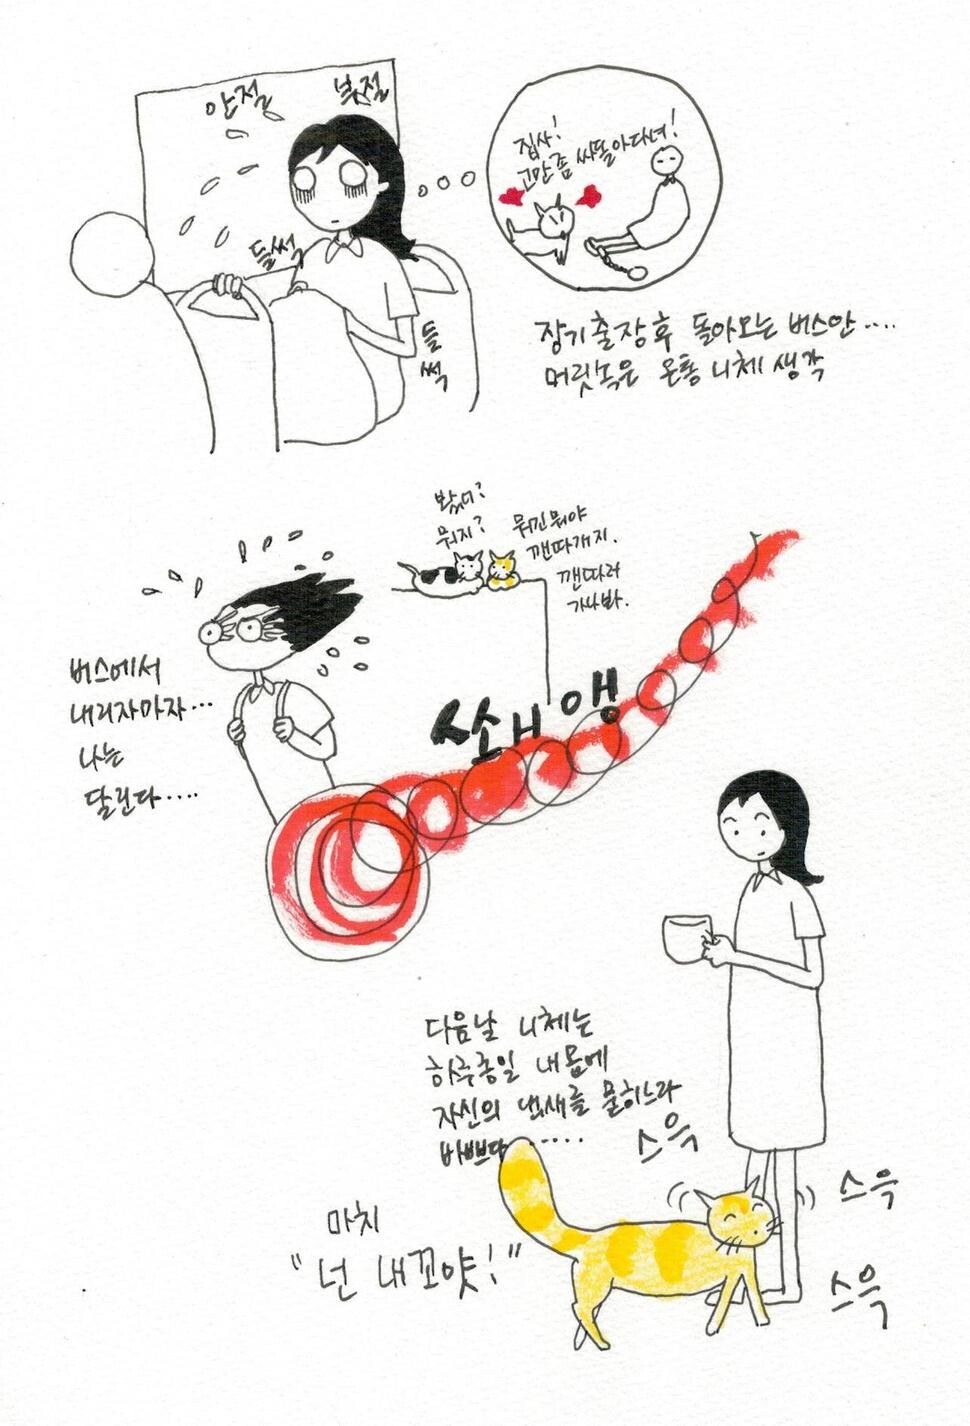 안절 부절
들썩
들
썩
집사!
고만 좀 싸돌아다녀!
장기출장 후 돌아오는 버스안....
머릿속은 온통 니체 생각
봤어?
뭐지?
뭐긴뭐야
깬따개지.
깬따러
가나봐.
버스에서
내리자마자...
나는
달린다....
쏴내앵
다음날 니체는
하루종일 내 몸에
자신의 냄새를 묻히느라
바쁘다.....
스윽
스윽
마치
"넌 내꼬얏!"
스윽